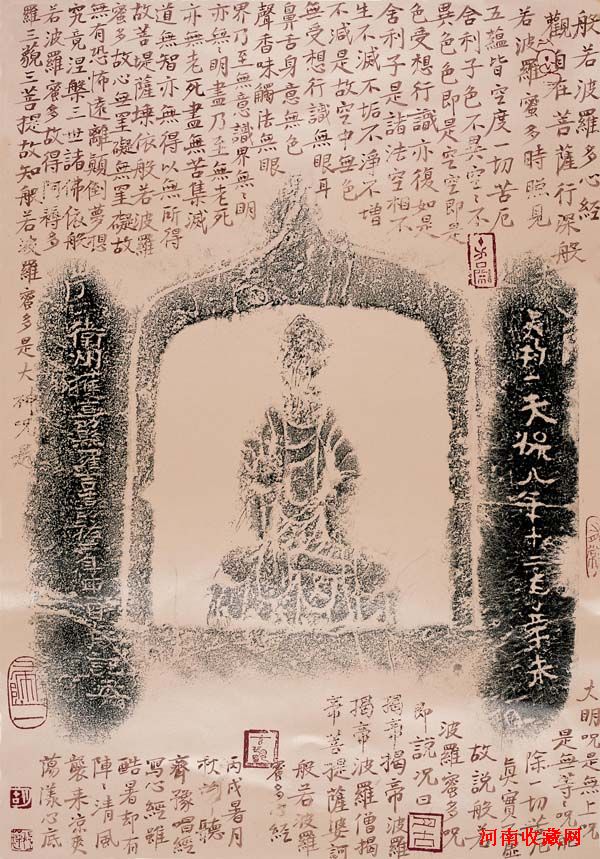 般若波羅蜜多心經
觀自在菩薩行深般
若波羅蜜多時照見
五蘊皆空度一切苦厄
舍利子色不異空空不
異色色即是空空即是
色受想行識亦復如是
舍利子是諸法空相不
生不滅不垢不淨不增
不減是故空中無色
無受想行識無眼耳
鼻舌身意無色
聲香味觸法無眼
界乃至無意識界無明
亦無明盡乃至無老死
亦無老死盡無苦集滅
道無智亦無得以無所得
故菩提薩埵依般若波羅
蜜多故心無罣礙無罣礙故
無有恐怖遠離顛倒夢想
究竟涅槃三世諸佛依般
若波羅蜜多故得阿耨多
羅三藐三菩提故知般若波羅蜜多是大神咒是
天保八年十二月辛未
大明咒是無上咒
是無等々咒
除一切苦
真實
故說般若
波羅蜜多咒
即說咒曰
揭帝揭帝波羅
揭帝波羅僧揭
帝菩提薩婆訶
般若波羅
蜜多心經
丙戌暑月
秋河聽
齊豫唱經
寫心經雖
酷暑却有
陣々清風
襲來涼爽
蕩漾心底
河南收藏网